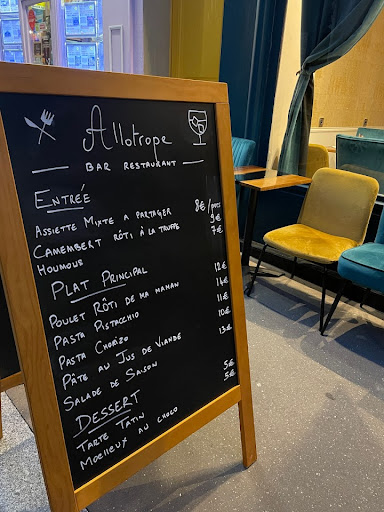 Allotrope
BAR RESTAURANT
ENTRÉE
ASSIETTE MIXTE A PARTAGER 8€/pers
CAMEMBERT RÔTI À LA TRUFFE 9€
HOUMOUS 7€
PLAT PRINCIPAL
POULET RÔTI DE MA MAMAN 12€
PASTA PISTACCHIO 14€
PASTA CHORIZO 11€
PÂTE AU JUS DE VIANDE 10€
SALADE DE SAISON 13€
DESSERT
TARTE TATIN 5€
MOELLEUX AU CHOCO 5€